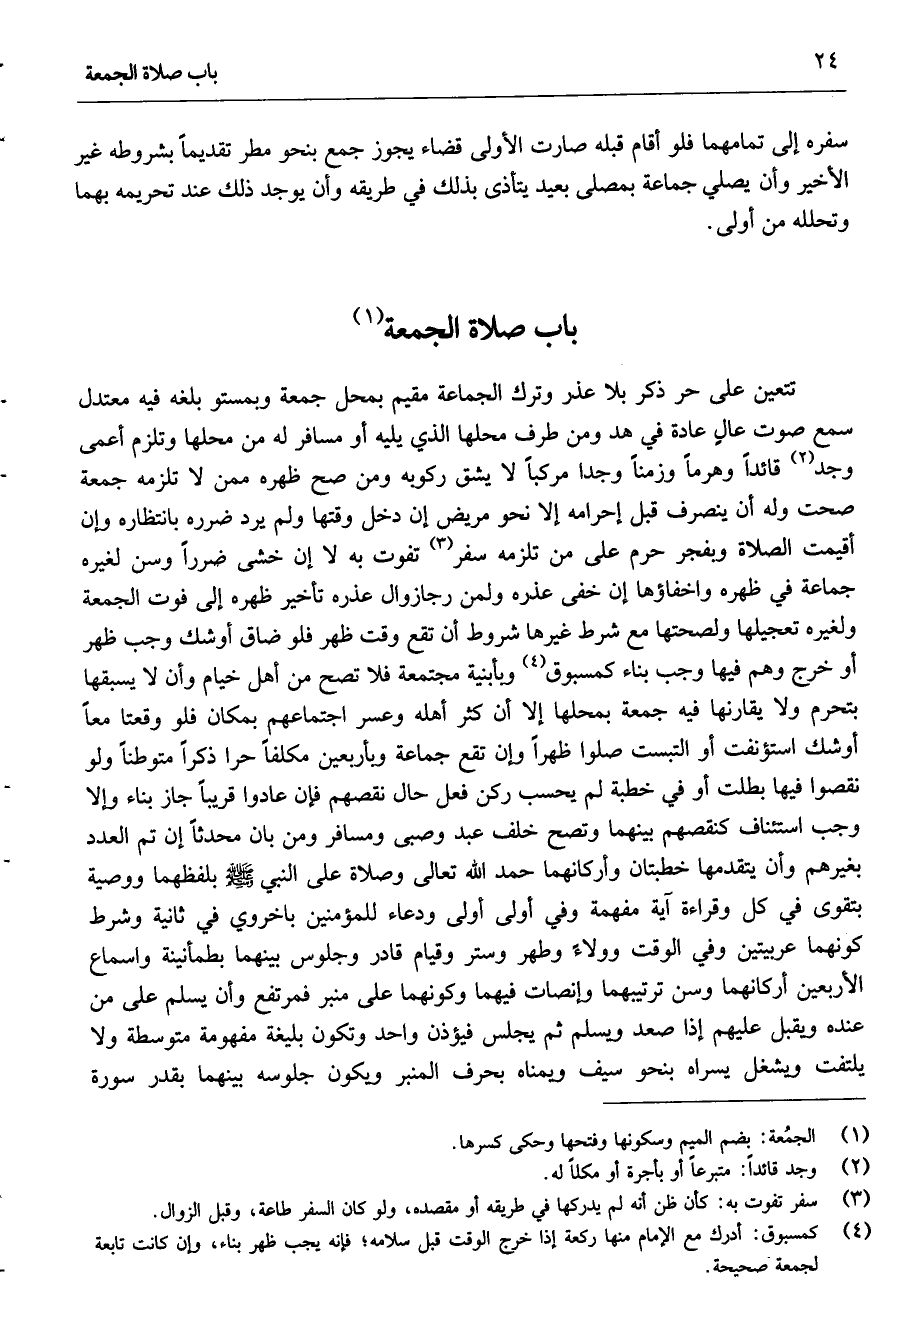 ٢٤
باب صلاة الجمعة
سفره إلى تمامهما فلو أقام قبله صارت الأولى قضاء يجوز جمع بنحو مطر تقديماً بشروطه غير
الأخير وأن يصلي جماعة بمصلى بعيد يتأذى بذلك في طريقه وأن يوجد ذلك عند تحريمه بهما
وتحلله من أولى.
باب صلاة الجمعة(١)
تتعين على حر ذكر بلا عذر وترك الجماعة مقيم بمحل جمعة وبمستو بلغه فيه معتدل
سمع صوت عالٍ عادة في هد ومن طرف محلها الذي يليه أو مسافر له من محلها وتلزم أعمى
وجد(٢) قائداً وهرماً وزمناً وجدا مركباً لا يشق ركوبه ومن صح ظهره ممن لا تلزمه جمعة
صحت وله أن ينصرف قبل إحرامه إلا نحو مريض إن دخل وقتها ولم يرد ضرره بانتظاره وإن
أقيمت الصلاة وبفجر حرم على من تلزمه سفر(٣) تفوت به لا إن خشى ضرراً وسن لغيره
جماعة في ظهره واخفاؤها إن خفى عذره ولمن رجازوال عذره تأخير ظهره إلى فوت الجمعة
ولغيره تعجيلها ولصحتها مع شرط غيرها شروط أن تقع وقت ظهر فلو ضاق أوشك وجب ظهر
أو خرج وهم فيها وجب بناء كمسبوق(٤) وبأبنية مجتمعة فلا تصح من أهل خيام وأن لا يسبقها
بتحرم ولا يقارنها فيه جمعة بمحلها إلا أن كثر أهله وعسر اجتماعهم بمكان فلو وقعتا معاً
أوشك استؤنفت أو التبست صلوا ظهراً وإن تقع جماعة وبأربعين مكلفاً حرا ذكراً متوطناً ولو
نقصوا فيها بطلت أو في خطبة لم يحسب ركن فعل حال نقصهم فإن عادوا قريباً جاز بناء وإلا
وجب استئناف كنقصهم بينهما وتصح خلف عبد وصبى ومسافر ومن بان محدثاً إن تم العدد
بغيرهم وأن يتقدمها خطبتان وأركانهما حمد الله تعالى وصلاة على النبي ﷺ بلفظهما ووصية
بتقوى في كل وقراءة آية مفهمة وفي أولى أولى ودعاء للمؤمنين باخروي في ثانية وشرط
كونهما عربيتين وفي الوقت وولاءً وطهر وستر وقيام قادر وجلوس بينهما بطمأنينة واسماع
الأربعين أركانهما وسن ترتيبهما وإنصات فيهما وكونهما على منبر فمرتفع وأن يسلم على من
عنده ويقبل عليهم إذا صعد ويسلم ثم يجلس فيؤذن واحد وتكون بليغة مفهومة متوسطة ولا
يلتفت ويشغل يسراه بنحو سيف ويمناه بحرف المنبر ويكون جلوسه بينهما بقدر سورة
(١) الجمُعة: بضم الميم وسكونها وفتحها وحكى كسرها.
(٢) وجد قائداً: متبرعاً أو بأجرة أو مكلاً له.
(٣) سفر تفوت به: كأن ظن أنه لم يدركها في طريقه أو مقصده، ولو كان السفر طاعة، وقبل الزوال.
(٤) كمسبوق: أدرك مع الإمام منها ركعة إذا خرج الوقت قبل سلامه؛ فإنه يجب ظهر بناء، وإن كانت تابعة
لجمعة صحيحة.